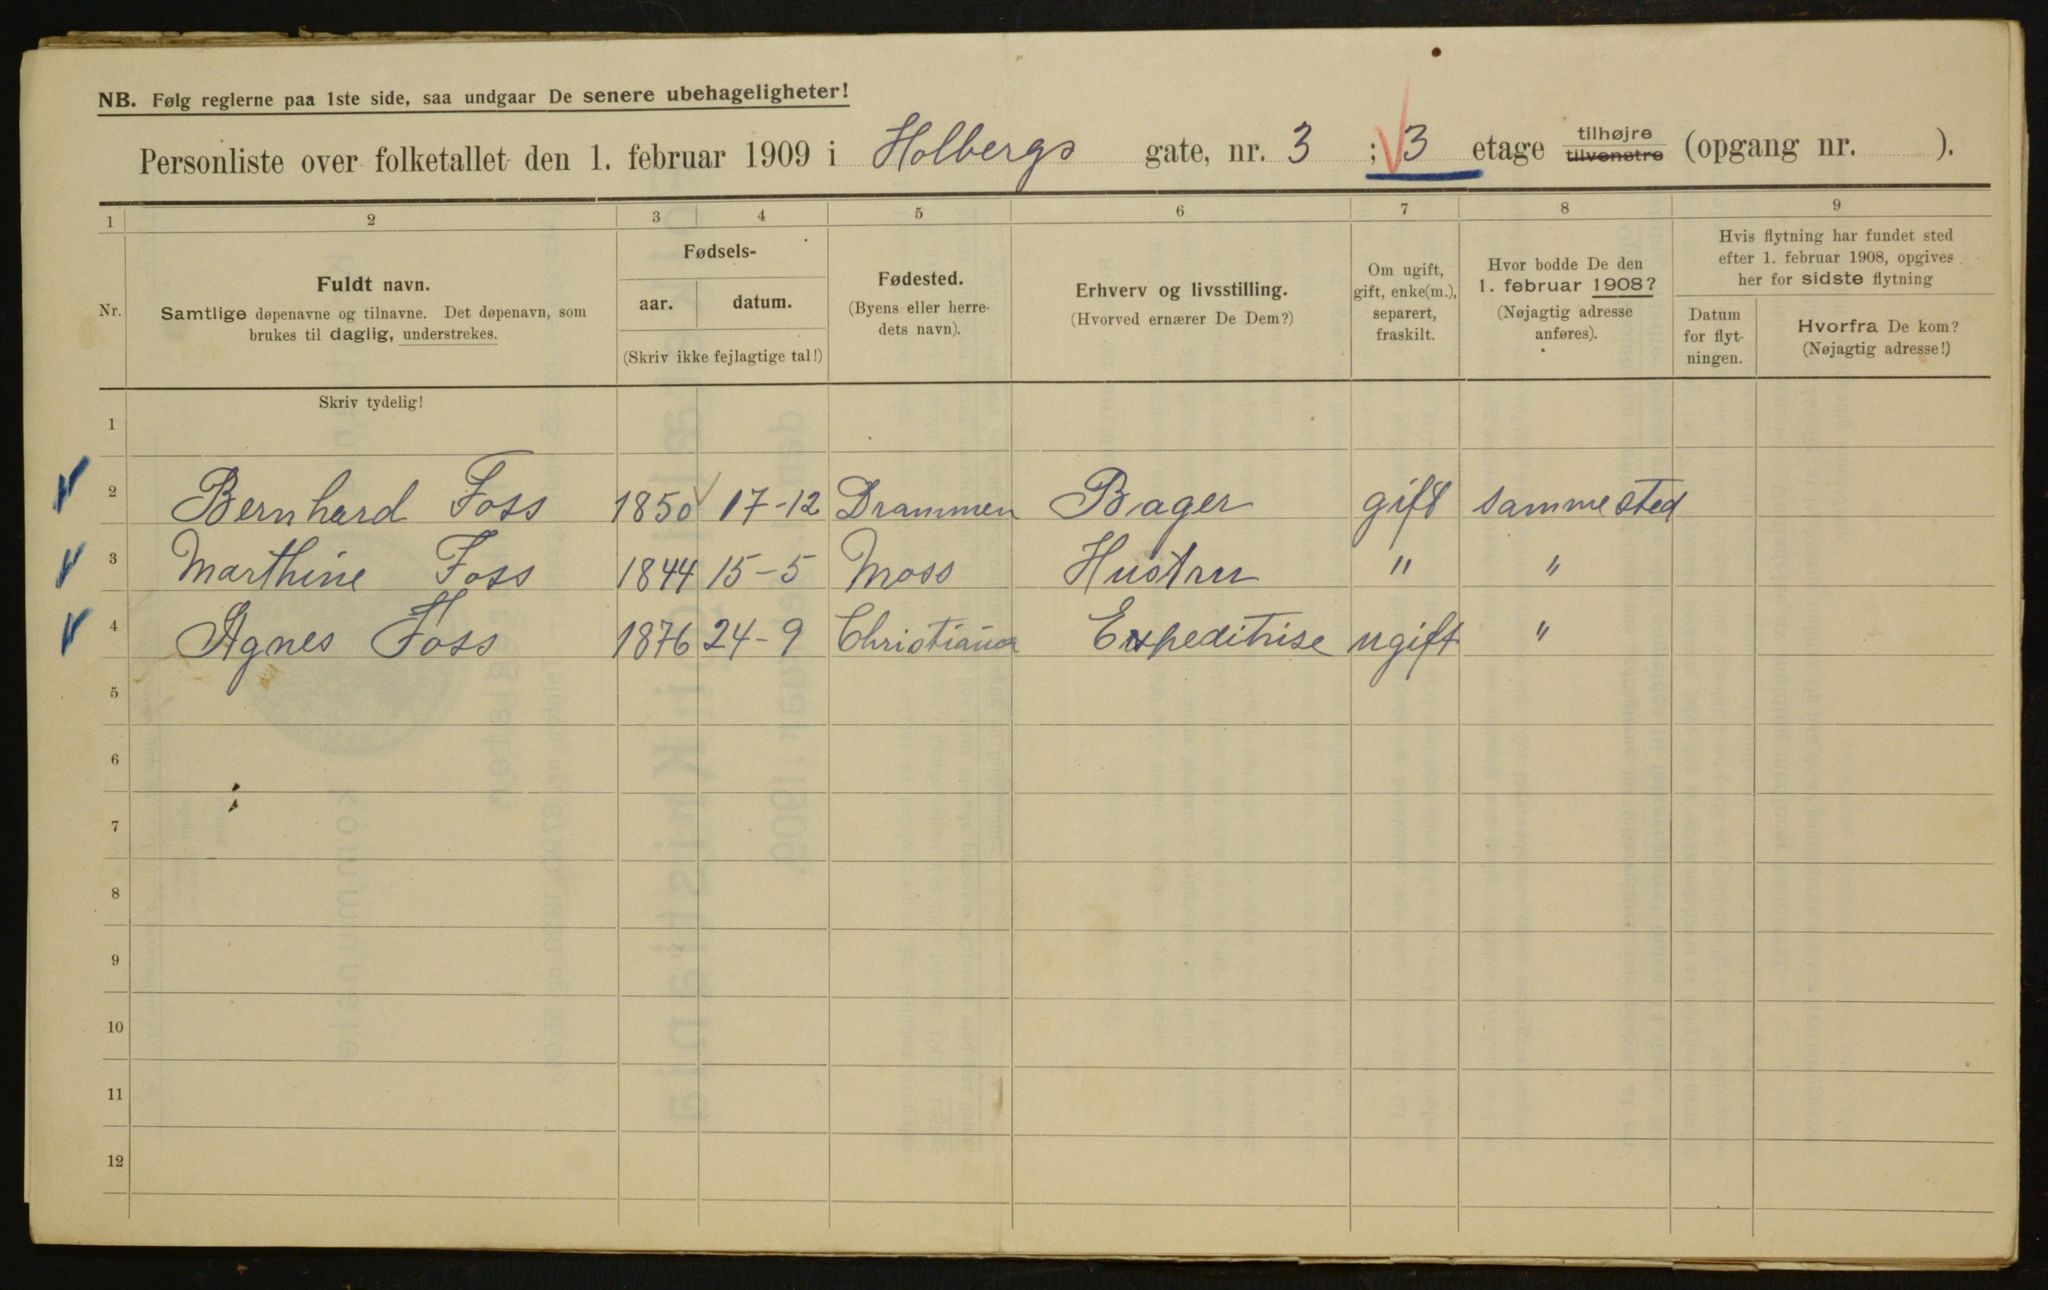 NB. Følg reglerne paa 1ste side, saa undgaar De senere ubehageligheter!
Personliste over folketallet den 1. februar 1909 i Holbergs gate, nr. 3 ; 3 etage tilhøjre tilvenstre (opgang nr. ).
1 2 3 4 5 6 7 8 9
Nr.
Fuldt navn.
Samtlige døpenavne og tilnavne. Det døpenavn, som
brukes til daglig, understrekes.
Fødsels-
aar. datum.
(Skriv ikke fejlagtige tal!)
Fødested.
(Byens eller herre-
dets navn).
Erhverv og livsstilling.
(Hvorved ernærer De Dem?)
Om ugift,
gift, enke(m.),
separert,
fraskilt.
Hvor bodde De den
1. februar 1908?
(Nøjagtig adresse
anføres).
Hvis flytning har fundet sted
efter 1. februar 1908, opgives
her for sidste flytning
Datum
for flyt-
ningen.
Hvorfra De kom?
(Nøjagtig adresse!)
Skriv tydelig!
1
2 Bernhard Foss 1850 17-12 Drammen Bager gift sammested
3 Marthine Foss 1844 15-5 Moss Hustru " "
4 Agnes Foss 1876 24-9 Christiania Expeditrise ugift "
5
6
7
8
9
10
11
12